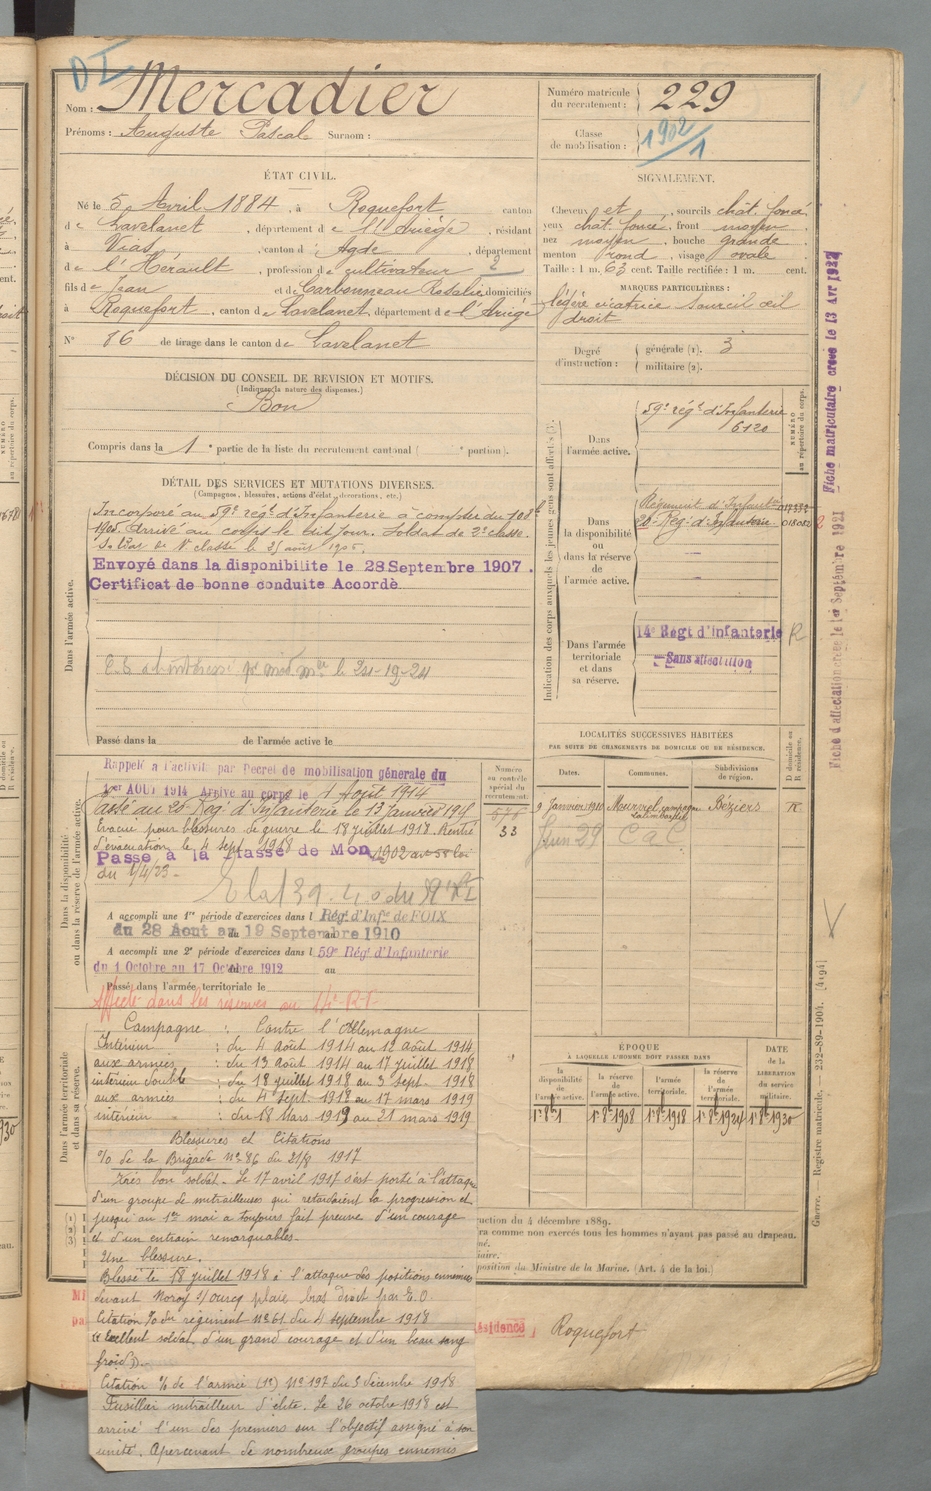 D I
Nom : Mercadier
Prénoms : Auguste Pascal Surnom :
Numéro matricule
du recrutement : 229
Classe
de mobilisation : 1902/1
ÉTAT CIVIL.
Né le 5 Avril 1884, à Roquefort canton
de Lavelanet, département de l'Ariège, résidant
à Vias, canton d'Agde, département
de l'Hérault, profession de cultivateur 2
fils de Jean et de Carbonneau Rosalie domiciliés
à Roquefort, canton de Lavelanet, département de l'Ariège
N° 86 de tirage dans le canton de Lavelanet
SIGNALEMENT.
Cheveux et, sourcils chât. foncé
yeux chât. foncé, front moyen
nez moyen, bouche grande
menton rond, visage ovale
Taille : 1 m. 63 cent. Taille rectifiée : 1 m. cent.
MARQUES PARTICULIÈRES :
légère cicatrice sourcil œil
droit
Degré
d'instruction : générale (1). 3
militaire (2).
DÉCISION DU CONSEIL DE REVISION ET MOTIFS.
(Indiquer la nature des dispenses.)
Bon
Compris dans la 1e partie de la liste du recrutement cantonal ( e portion).
DÉTAIL DES SERVICES ET MUTATIONS DIVERSES.
(Campagnes, blessures, actions d'éclat, décorations, etc.)
Dans l'armée active.
Incorporé au 59e régt d'Infanterie à compter du
1905. Arrivé au corps le dit jour. Soldat de 2e classe.
Soldat de 1e classe le 25 août 1906.
Envoyé dans la disponibilite le 28 Septembre 1907.
Certificat de bonne conduite Accordé
Passé dans la de l'armée active le
Indication des corps auxquels les jeunes gens sont affectés
Dans
l'armée active.
59e régt d'Infanterie
6120
NUMÉRO
au répertoire du corps.
Dans
la disponibilité
ou
dans la réserve
de
l'armée active.
Régiment d'Infanterie
20e Régt d'Infanterie 018082
Dans l'armée
territoriale
et dans
sa réserve.
14e Régt d'Infanterie R
Sans affectation
Fiche matriculaire créée le 13 Avr 1922
Fiche d'affectation créée le 1er Septembre 1921
LOCALITÉS SUCCESSIVES HABITÉES
PAR SUITE DE CHANGEMENTS DE DOMICILE OU DE RÉSIDENCE.
D domicile ou
R résidence.
Dates. Communes. Subdivisions
de région.
9 Janvier 1910 campagne Béziers R
Juin 29
Dans la disponibilité
ou dans la réserve de l'armée active.
Numéro
au contrôle
spécial du
recrutement.
33
Rappelé à l'activité par Decret de mobilisation générale du
1er AOUT 1914 Arrivé au corps le 1 Août 1914
Passé au 20e Régt d'Infanterie le 13 Janvier 1915
Evacué pour blessures de guerre le 18 juillet 1918. Rentré
d'évacuation le 4 sept. 1918
Passé à la classe de Mon 1902 art 58 loi
du 1/4/23 -
A accompli une 1re période d'exercices dans l Régt d'Infie de FOIX
du 28 Aout au 19 Septembre 1910
A accompli une 2e période d'exercices dans l 59e Régt d'Infanterie
du 1 Octobre au 17 Octobre 1912 au
Passé dans l'armée territoriale le
Affecté dans les réserves au 14e R.I.
Dans l'armée territoriale
et dans sa réserve.
Campagne : Contre l'Allemagne
Intérieur : du 4 août 1914 au 12 août 1914
aux armées : du 13 août 1914 au 17 juillet 1918
intérieur double : du 18 juillet 1918 au 3 sept. 1918
aux armées : du 4 sept. 1918 au 17 mars 1919
intérieur : du 18 Mars 1919 au 21 mars 1919
Blessures et Citations
% de la Brigade No 86 du 21/8 1917
Très bon soldat. Le 17 avril 1917 s'est porté à l'attaque
d'un groupe de mitrailleuses qui retardaient la progression et
jusqu'au 1er mai a toujours fait preuve d'un courage
et d'un entrain remarquables.
Une blessure.
Blessé le 18 juillet 1918 à l'attaque des positions ennemies
devant Noroy s/ourcq plaie bras droit par E.O.
Citation % du régiment No 61 du 4 septembre 1918
"Excellent soldat, d'un grand courage et d'un beau sang
froid".
Citation % de l'armée (1e) No 197 du 3 décembre 1918
Fusilier mitrailleur d'élite. Le 26 octobre 1918 est
arrivé l'un des premiers sur l'objectif assigné à son
unité. Apercevant de nombreux groupes ennemis
ÉPOQUE
À LAQUELLE L'HOMME DOIT PASSER DANS
DATE
de la
LIBÉRATION
du service
militaire.
la
disponibilité
de l'armée active.
la réserve
de
l'armée active.
l'armée
territoriale.
la réserve
de
l'armée
territoriale.
1er 8bre 1908 1er 8bre 1918 1er 8bre 1924 1er 8bre 1930
uction du 4 décembre 1889.
ra comme non exercés tous les hommes n'ayant pas passé au drapeau.
né.
iaire.
position du Ministre de la Marine. (Art. 4 de la loi.)
résidence Roquefort
Guerre. Registre matricule. — 232-89-1904. [4194]